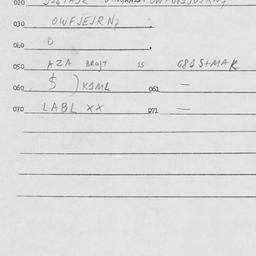 020
030 OWFJEJRNZ
040 O
050 AZA BRUJT SS G81S+MAR
060 $ ) K1ML 061 —
070 LABL XX 071 —